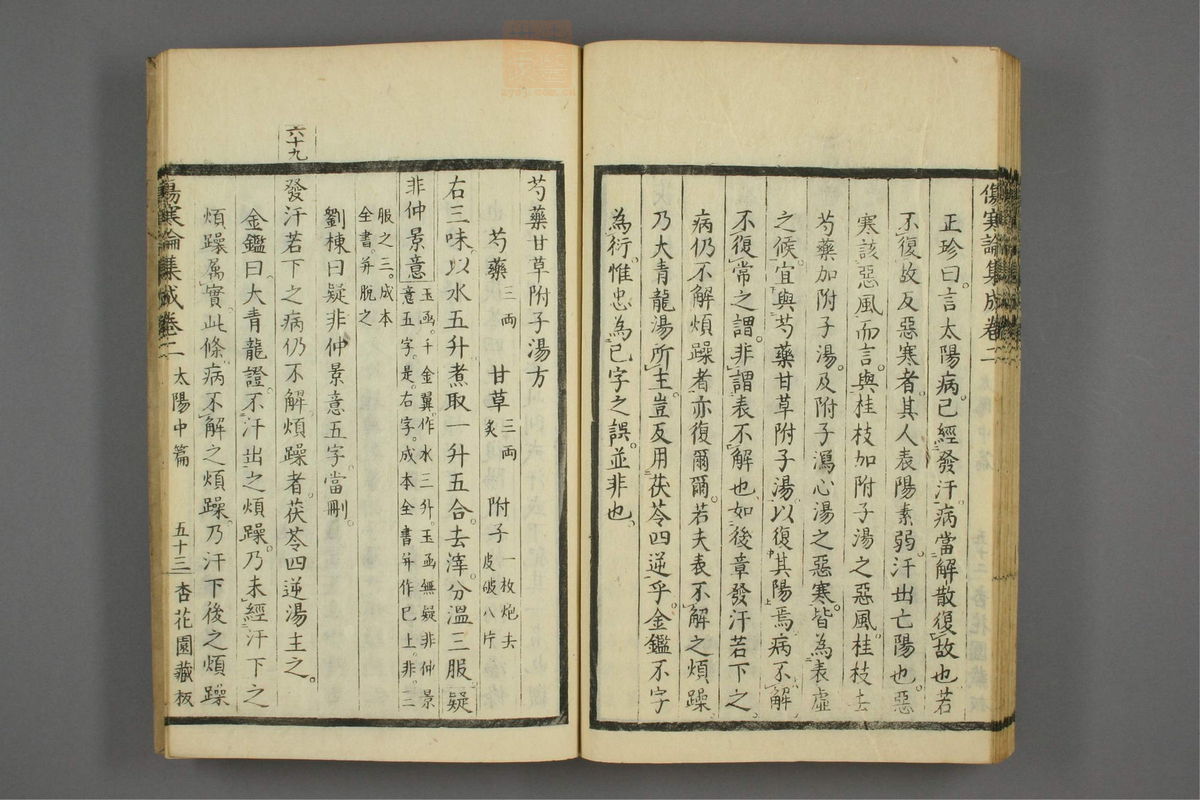 傷寒論集成卷二
正珍曰。言太陽病。已經發汗。病當解散復故也若
不復故反惡寒者。其人表陽素弱。汗出亡陽也。惡
寒該惡風而言。與桂枝加附子湯之惡風。桂枝去
芍藥加附子湯。及附子瀉心湯之惡寒。皆為表虛
之候。宜與芍藥甘草附子湯。以復其陽焉。病不解。
不復常之謂。非謂表不解也。如後章發汗若下之。
病仍不解煩躁者。亦復爾爾。若夫表不解之煩躁。
乃大青龍湯所主。豈反用茯苓四逆乎。金鑑不字
為衍。惟忠為已字之誤。並非也。
芍藥甘草附子湯方
芍藥三兩 甘草三兩炙 附子一枚炮去皮破八片
右三味。以水五升。煮取一升五合。去滓。分溫三服。疑
非仲景意玉函千金翼。作水三升。玉函無疑非仲景意五字。是。右字。成本全書并作已上。非。三
服之三。成本全書。并脫之
劉棟曰。疑非仲景意五字。當刪。
六十九
發汗若下之。病仍不解。煩躁者。茯苓四逆湯主之。
金鑑曰。大青龍證。不汗出之煩躁。乃未經汗下之
煩躁。屬實。此條。病不解之煩躁。乃汗下後之煩躁
傷寒論集成卷二 太陽中篇 五十三 杏花園藏板